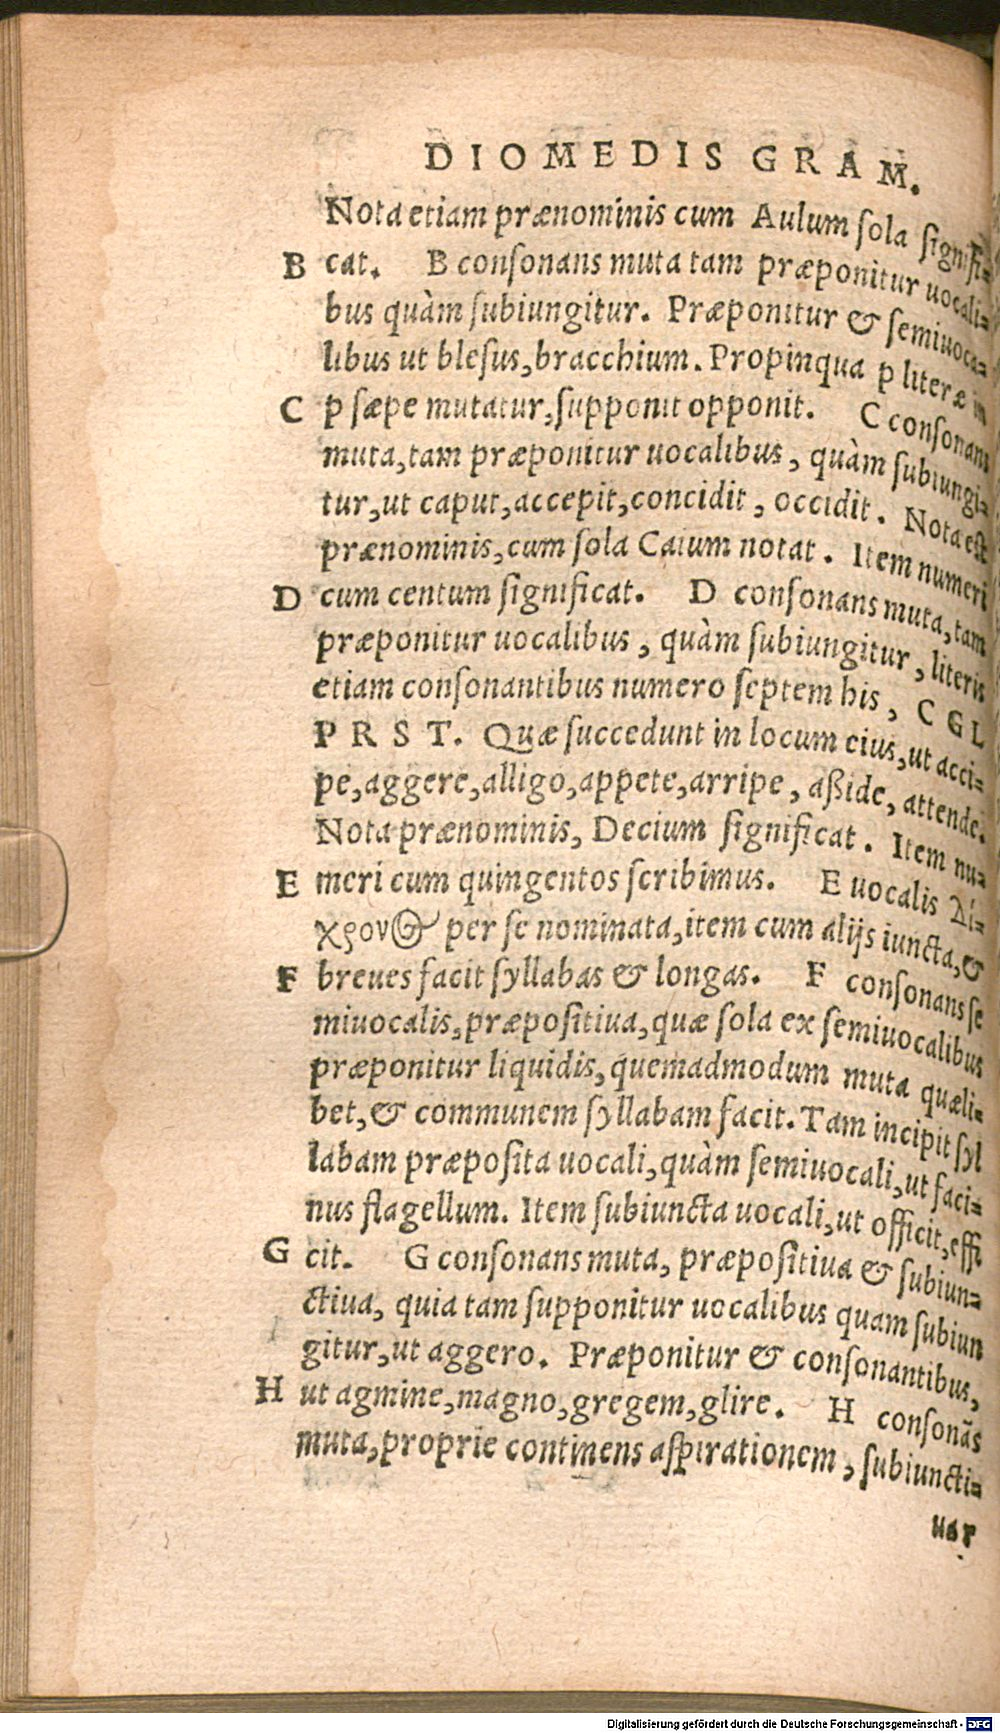 DIOMEDIS GRAM.
Nota etiam prænominis cum Aulum sola signifi=
B cat. B consonans muta tam præponitur uocali=
bus quàm subiungitur. Præponitur & semiuoca=
libus ut blesus, bracchium. Propinqua p literæ in
C p sæpe mutatur, supponit opponit. C consonans
muta, tam præponitur uocalibus, quàm subiungi=
tur, ut caput, accepit, concidit, occidit. Nota est
prænominis, cum sola Caium notat. Item numeri
D cum centum significat. D consonans muta, tam
præponitur uocalibus, quàm subiungitur, literis
etiam consonantibus numero septem his, C G L
P R S T. Quæ succedunt in locum eius, ut acci=
pe, aggere, alligo, appete, arripe, aßide, attende.
Nota prænominis, Decium significat. Item nu=
E meri cum quingentos scribimus. E uocalis Δί=
χρονος per se nominata, item cum alijs iuncta, &
F breues facit syllabas & longas. F consonans se
miuocalis, præpositiua, quæ sola ex semiuocalibus
præponitur liquidis, quemadmodum muta quæli=
bet, & communem syllabam facit. Tam incipit syl
labam præposita uocali, quàm semiuocali, ut faci=
nus flagellum. Item subiuncta uocali, ut officit, effi
G cit. G consonans muta, præpositiua & subiun=
ctiua, quia tam supponitur uocalibus quam subiun
gitur, ut aggero. Præponitur & consonantibus,
H ut agmine, magno, gregem, glire. H consonãs
muta, proprie continens aspirationem, subiuncti=
uar
Digitalisierung gefördert durch die Deutsche Forschungsgemeinschaft - DFG